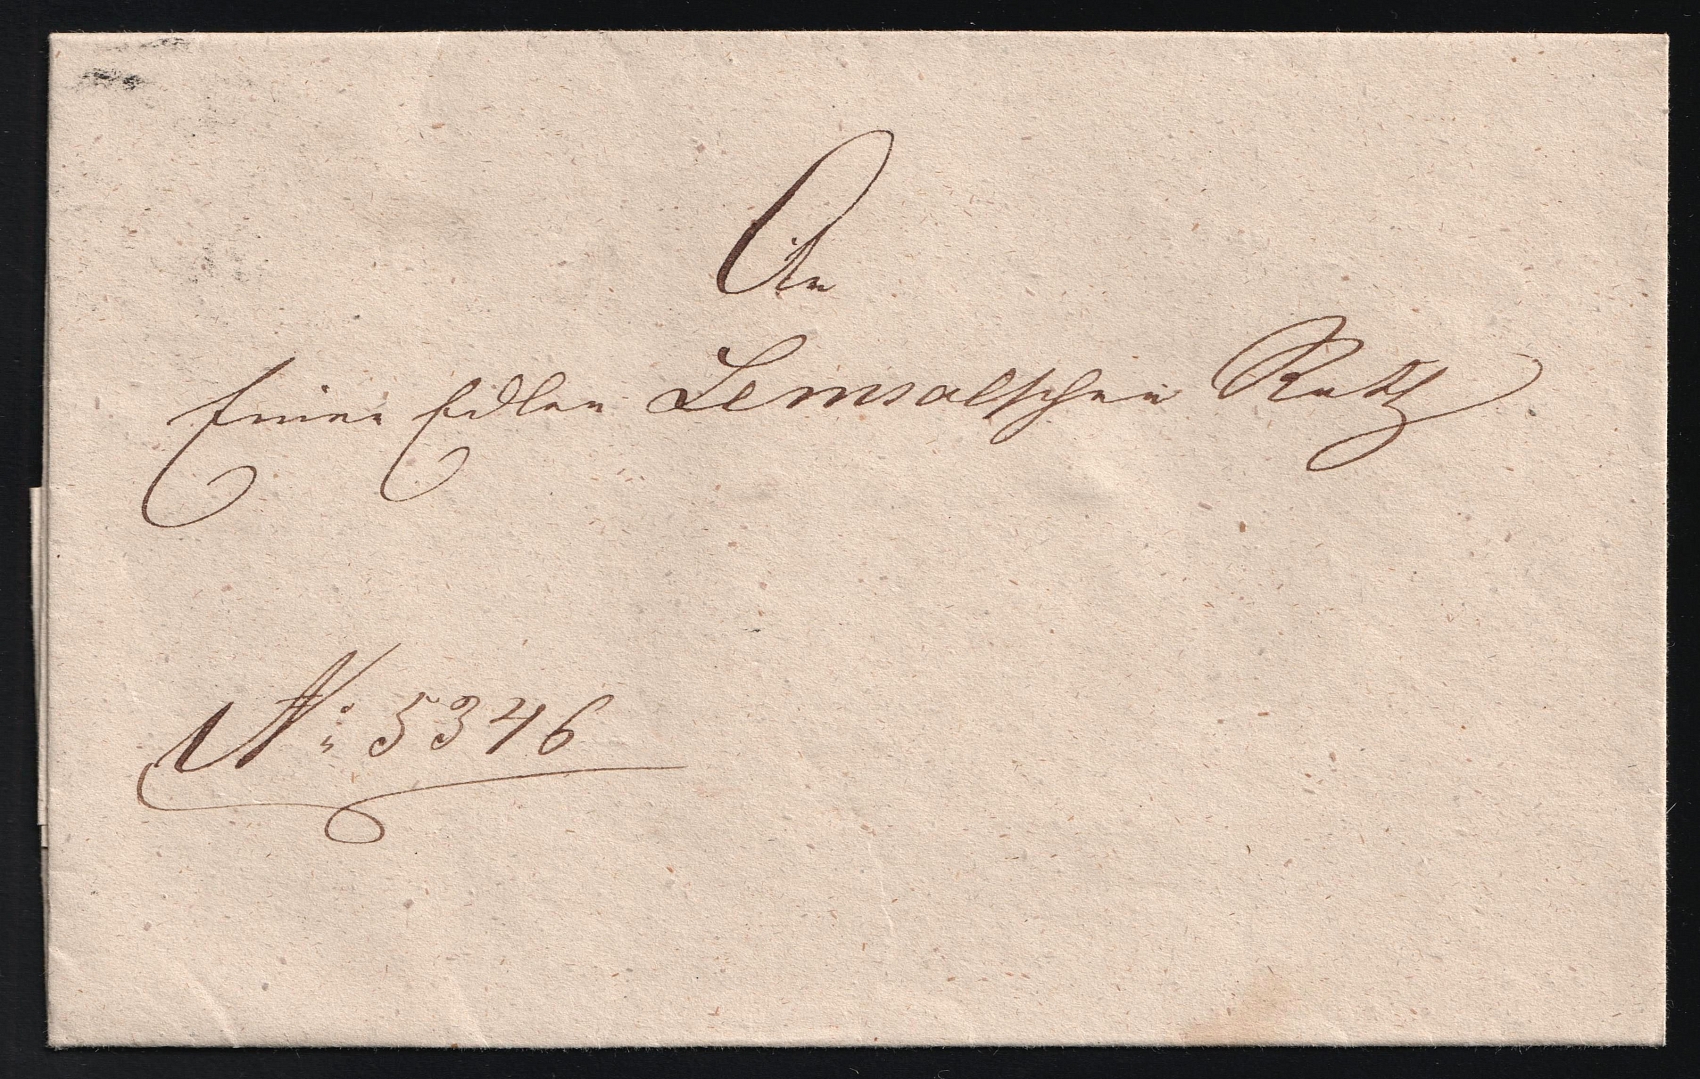 An
Einen Edlen Lemsalschen Rath
No: 5346